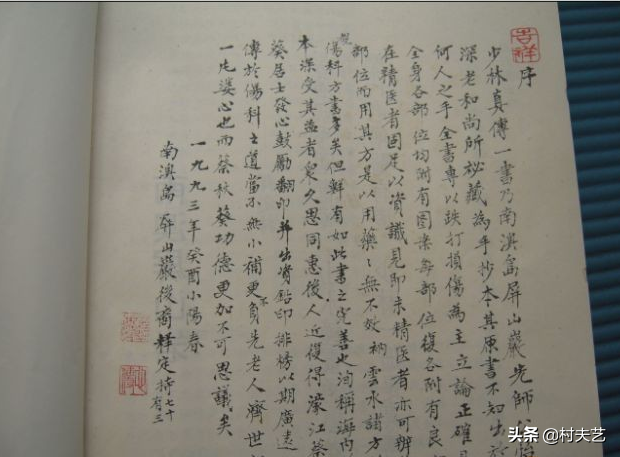 吉祥
序
少林真傳一書乃南澳島屏山巖先師
深老和尚所祕藏為手抄本其原書不知出於
何人之手全書專以跌打損傷為主立論正確
全身各部位均附有圖案每部位復各附有良
在精醫者固足以資識見即未精醫者亦可辦
部位而用其方是以用藥藥無不效衲雲水諸方
傷科方書多矣但鮮有如此書之完善也洵稱海內
本深受其益者眾久思同惠後人近復得濛江蔡
葵居士發心鼓勵翻印并出資鉛印排榜以期廣遠
傳於傷科士道當不無小補更不負先老人濟世
一片婆心也而蔡秋葵功德更加不可思議矣
一九九三年癸酉小陽春
南澳島屏山巖後裔釋定持七十有三
头条 @村夫艺